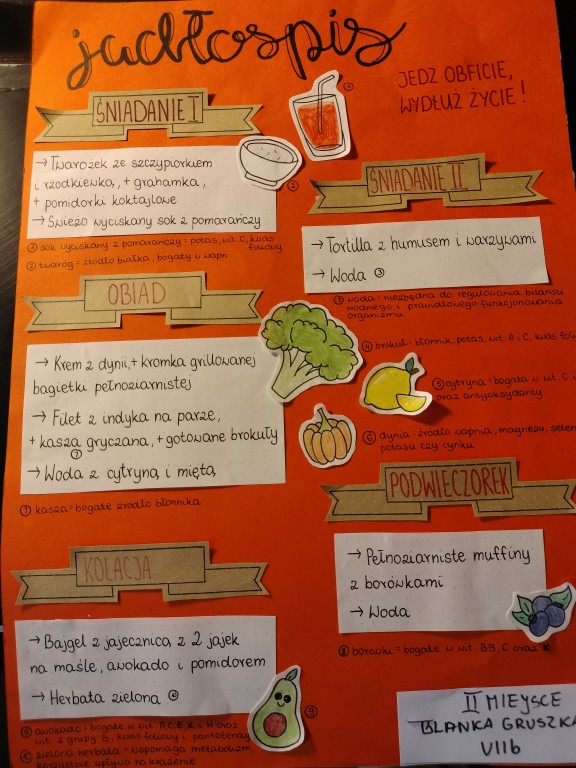 jadłospis
JEDZ OBFICIE,
WYDŁUŻ ŻYCIE!
ŚNIADANIE I
→ Twarożek ze szczypiorkiem
i rzodkiewką, + grahamka,
+ pomidorki koktajlowe
→ Świeżo wyciskany sok z pomarańczy
① sok wyciskany z pomarańczy = potas, wit. C, kwas
foliowy
② twaróg = źródło białka, bogaty w wapń
①
②
ŚNIADANIE II
→ Tortilla z humusem i warzywami
→ Woda ③
③ woda = niezbędna do regulowania bilansu
wodnego i prawidłowego funkcjonowania
organizmu
OBIAD
→ Krem z dyni, + kromka grillowanej
bagietki pełnoziarnistej
→ Filet z indyka na parze,
+ kasza gryczana, + gotowane brokuły
⑦
→ Woda z cytryną i miętą
⑦ kasza = bogate źródło błonnika
④ brokuł = błonnik, potas, wit. A i C, kwas
⑤ cytryna = bogata w wit. C i
oraz antyoksydanty
⑥ dynia = źródło wapnia, magnezu,
potasu czy cynku
PODWIECZOREK
→ Pełnoziarniste muffiny
z borówkami
→ Woda
⑧ borówki = bogate w wit. B9, C oraz K
KOLACJA
→ Bajgel z jajecznicą z 2 jajek
na maśle, awokado i pomidorem
→ Herbata zielona
⑨
⑨ awokado = bogate w wit. A, C, E, K i H oraz
wit. z grupy B, kwas foliowy i pantotenowy
zielona herbata = wspomaga metabolizm,
korzystnie wpływa na krążenie
II MIEJSCE
BLANKA GRUSZKA
VII b